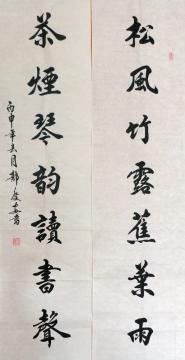 松風竹露蕉葉雨
茶煙琴韵讀書聲
丙申年